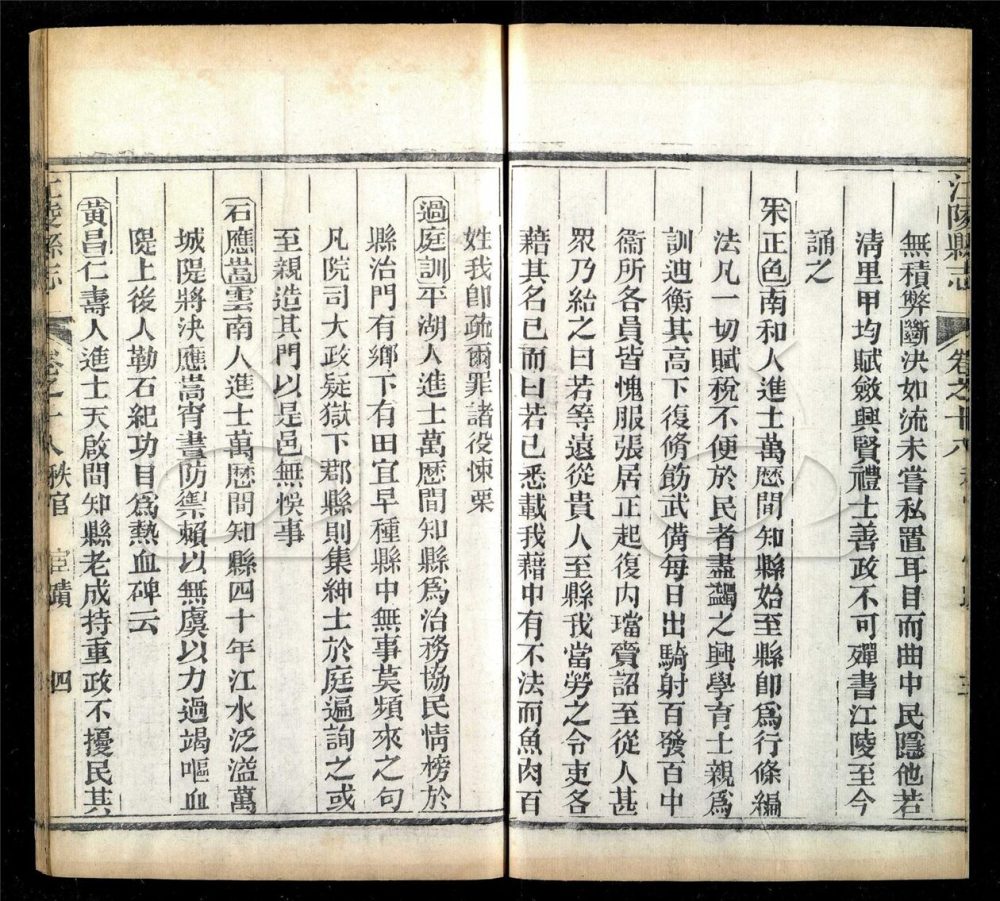 江陵縣志
卷之十八
三
無積弊斷決如流未嘗私置耳目而曲中民隱他若
淸里甲均賦斂興賢禮士善政不可殫書江陵至今
誦之
朱正色南和人進士萬歴間知縣始至縣卽爲行條編
法凡一切賦稅不便於民者盡蠲之興學育士親爲
訓廸衡其高下復脩飭武備每日出騎射百發百中
衞所各員皆愧服張居正起復內璫賫詔至從人甚
眾乃紿之曰若等遠從貴人至縣我當勞之令吏各
藉其名已而曰若已悉載我藉中有不法而魚肉百
姓我卽疏爾罪諸役悚栗
過庭訓平湖人進士萬歴間知縣爲治務協民情榜於
縣治門有鄉下有田宜早種縣中無事莫頻來之句
凡院司大政疑獄下郡縣則集紳士於庭遍詢之或
至親造其門以是邑無悞事
石應嵩雲南人進士萬歴間知縣四十年江水泛溢萬
城隄將決應嵩宵晝防禦賴以無虞以力過竭嘔血
隄上後人勒石紀功目爲熱血碑云
黃昌仁壽人進士天啟間知縣老成持重政不擾民其
江陵縣志
卷之十八
秩官
宦蹟
四